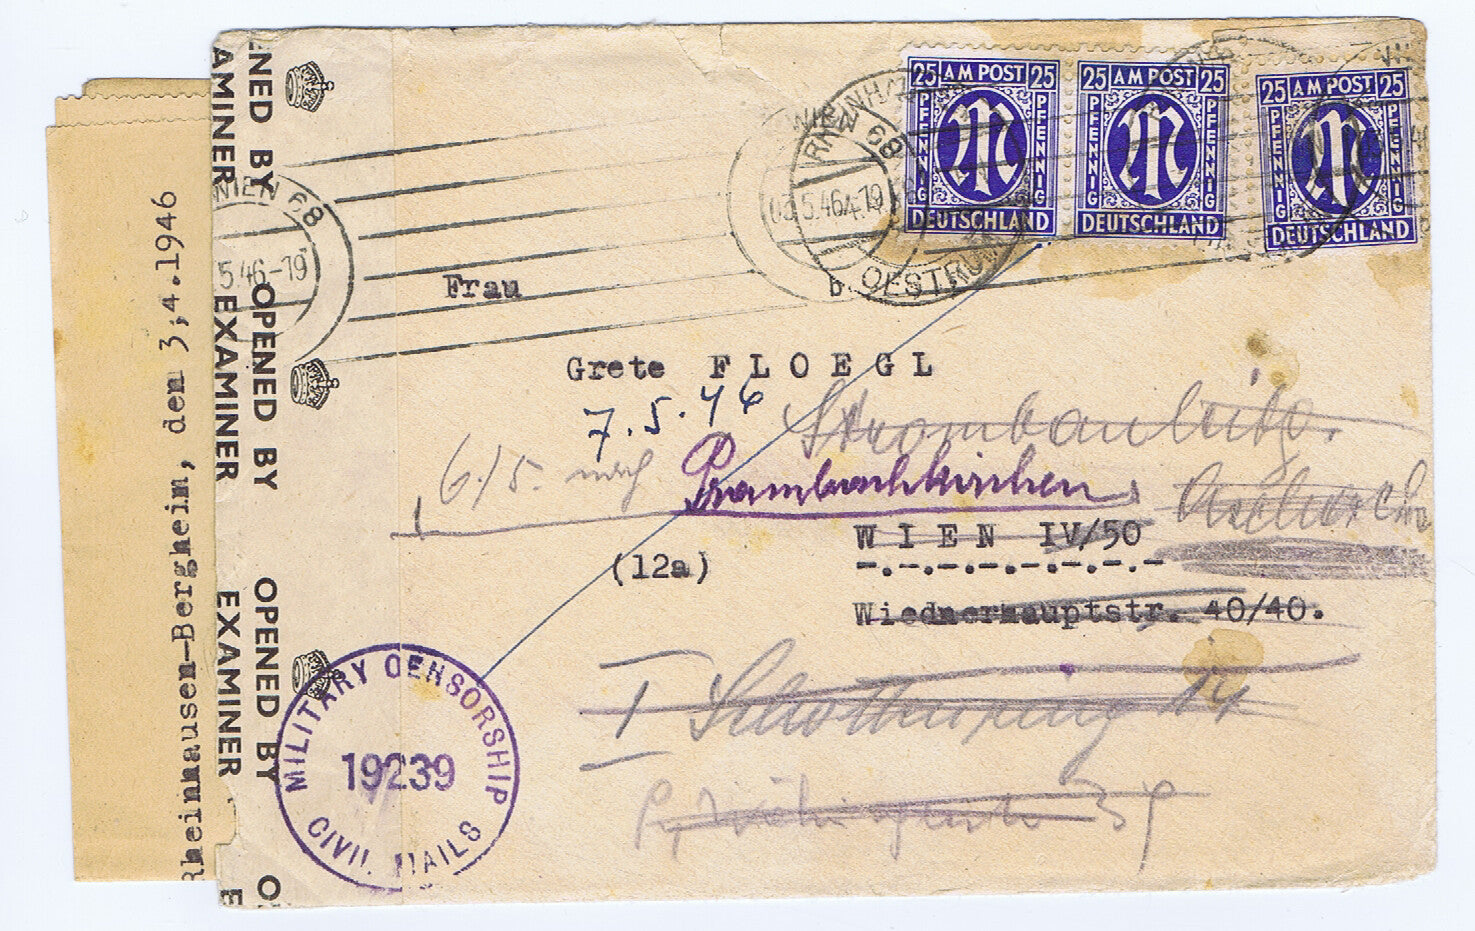 25 AM POST 25
PFENNIG PFENNIG
DEUTSCHLAND
25 AM POST 25
PFENNIG PFENNIG
DEUTSCHLAND
25 AM POST 25
PFENNIG PFENNIG
DEUTSCHLAND
WIEN 68
5.46-19
WIEN 68
5.46
b
OESTRUM
Frau
Grete FLOEGL
7.5.46
6/5. nach Prambachkirchen
WIEN IV/50
(12a)
-.-.-.-.-.-.-.-.-
Wiednerhauptstr. 40/40.
I Schottenring 14
39
MILITARY CENSORSHIP
19239
CIVIL MAILS
NED BY
AMINER
OPENED BY
EXAMINER
OPENED BY
EXAMINER
O
E
Rheinhausen-Bergheim, den 3,4.1946